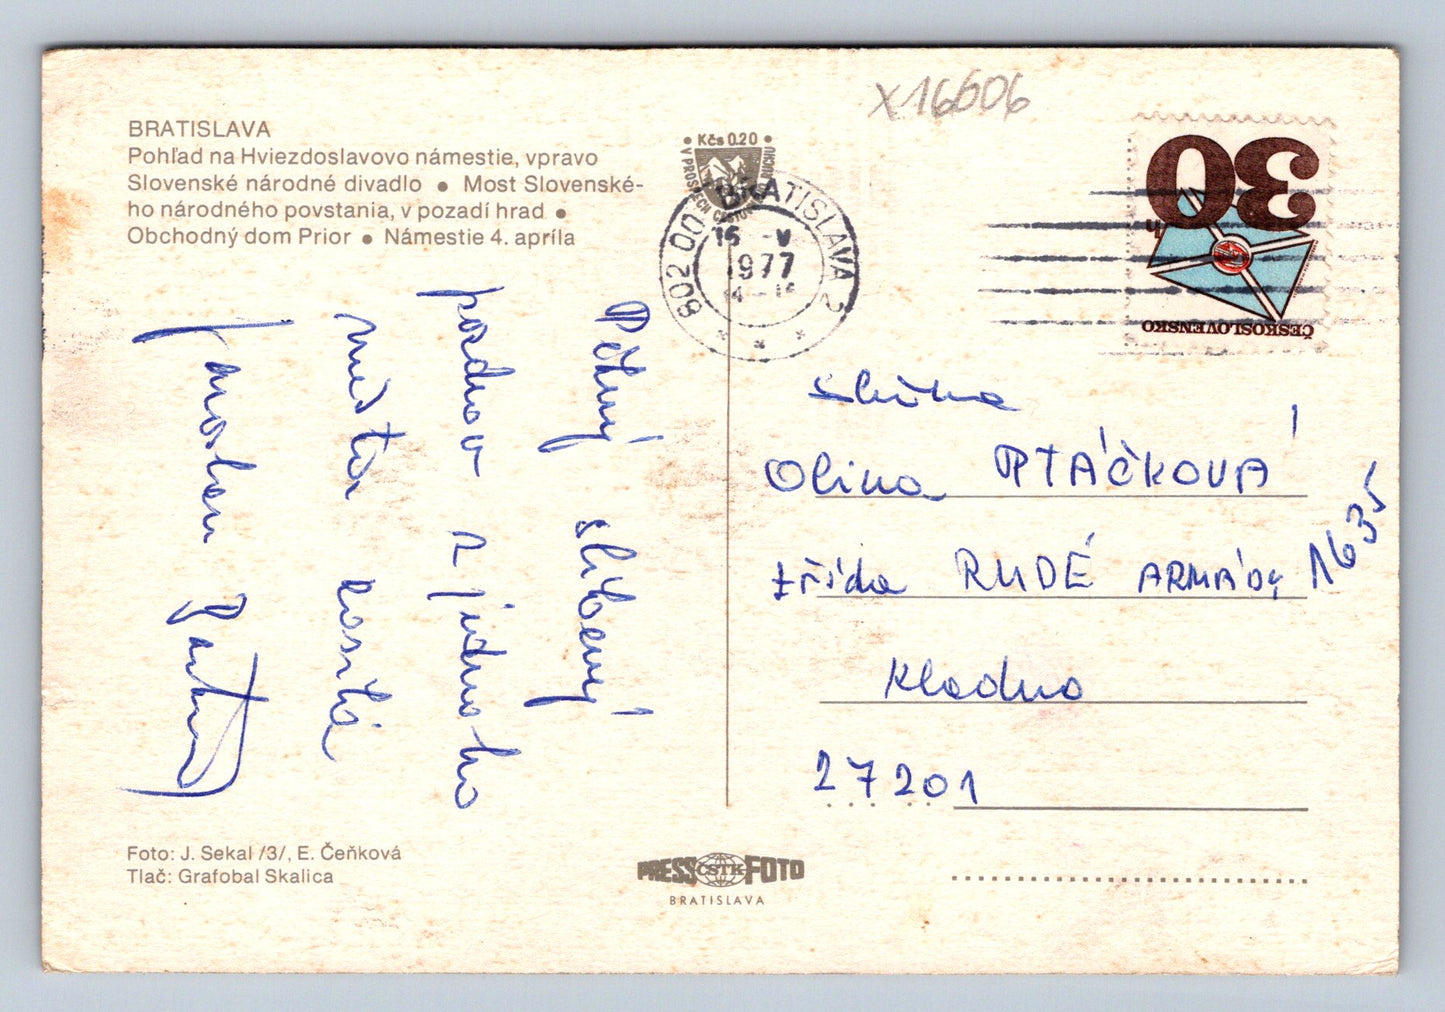 X16606
BRATISLAVA
Pohľad na Hviezdoslavovo námestie, vpravo
Slovenské národné divadlo ● Most Slovenské-
ho národného povstania, v pozadí hrad ●
Obchodný dom Prior ● Námestie 4. apríla
• Kčs 0.20 •
V PROSPECH
802 00 BRATISLAVA 2
1977
30
h
ČESKOSLOVENSKO
Pěkný slíbený
pozdrav z jednoho
města zasílá
Jaroslav
slečna
Olina PTÁČKOVÁ
třída RUDÉ ARMÁDY 1635
Kladno
27201
Foto: J. Sekal /3/, E. Čeňková
Tlač: Grafobal Skalica
PRESS ČSTK FOTO
BRATISLAVA